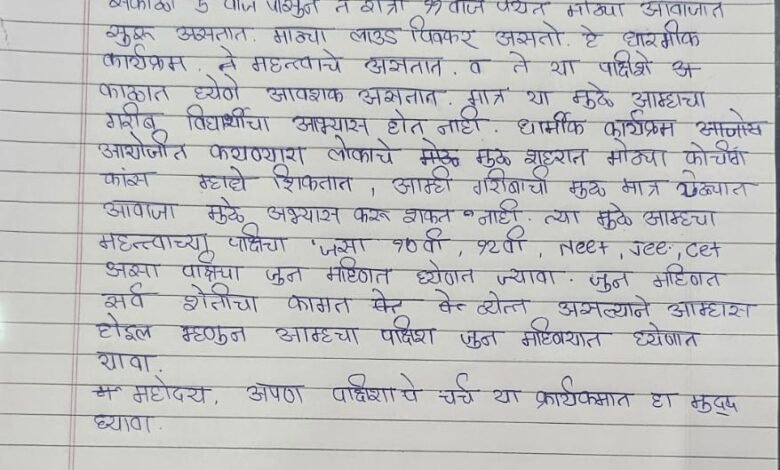 सकाळी 5 वाज पासुन ते रात्री 11 वाजे पर्यंत मोठ्या आवाजात
सुरू असतात. माठ्या लाउड स्पिकर असतो. हे धारमीक
कार्यक्रम. ते महत्त्वाचे असतात. व ते या परिक्षेशे अ
काळात घ्येणे आवशक असतात. मात्र या मुळे आम्हाचा
गरीब विद्यार्थीचा आभ्यास होत नाही. धार्मीक कार्यक्रम
आयोजीत करण्यारा लोकाचे मुळ शहरात मोठ्या कोचींग
क्लांस म्हाध्ये शिकतात, आम्ही गरीबाची मुळ मात्र खेड्यात
आवाजा मुळे अभ्यास करू शकत नाही. त्या मुळे आम्हचा
महत्त्वाच्या परिक्षा जसा १०वी, १२वी, Neet, Jee, Cet
असा परिक्षा जुन महिणत घ्येणत ज्यावा. जुन महिणत
सर्व शेतीचा कामत व्येस्त असल्याने आम्हास
होइल म्हणुन आम्हचा परिक्षा जुन महिण्यात घ्येणात
याव्या.
महोदय, आपण परिक्षाचे चर्च या कार्यकमात हा मुद्दा
घ्यावा.